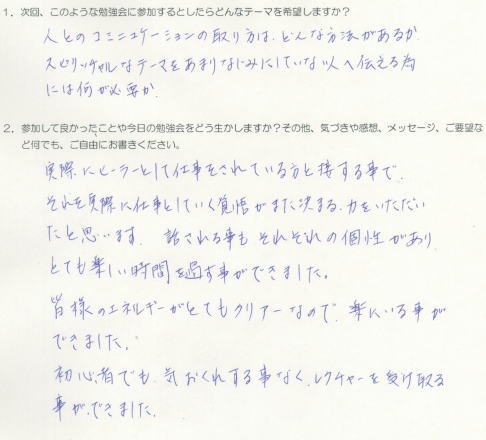 1．次回、このような勉強会に参加するとしたらどんなテーマを希望しますか？
人とのコミニュケーションの取り方は、どんな方法があるか
スピリッチャルなテーマをあまりなじみにしていない人へ伝える為
には何が必要か
2．参加して良かったことや今日の勉強会をどう生かしますか？その他、気づきや感想、メッセージ、ご要望な
ど何でも、ご自由にお書きください。
実際にヒーラーとして仕事をされている方と接する事で、
それを実際に仕事としていく覚悟がまた決まる、力をいただい
たと思います。 話される事も それぞれの個性があり
とても楽しい時間を過す事ができました。
皆様のエネルギーがとてもクリアーなので、楽にいる事が
できました。
初心者でも、気おくれする事なく、レクチャーを受け取る
事ができました。